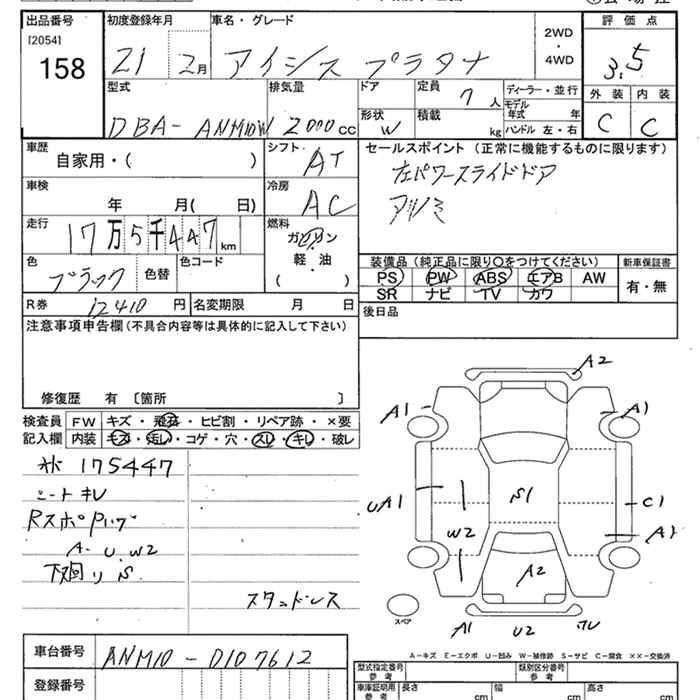 出品番号 初度登録年月 車名・グレード 2WD・4WD 評価点
[2054]
158 21 2月 アイシス プラタナ 3.5
型式 排気量 ドア 定員 7人 ディーラー・並行 外装 内装
モデル年式 年
DBA-ANM10W 2000cc 形状 W 積載 kg ハンドル 左・右 C C
車歴 シフト AT セールスポイント (正常に機能するものに限ります)
自家用・( ) 左パワースライドドア
車検 冷房 アルミ
年 月( 日) AC
走行 17万5千447km 燃料 ガソリン
軽・油
( )
色 ブラック 色替 色コード 装備品 (純正品に限り○をつけてください) 新車保証書
PS PW ABS エアB AW 有・無
SR ナビ TV カワ
R券 12410円 名変期限 月 日 後日品
注意事項申告欄(不具合内容等は具体的に記入して下さい)
修復歴 有 〔箇所 〕
検査員 FW キズ・飛石・ヒビ割・リペア跡・×要
記入欄 内装 キズ・汚れ・コゲ・穴・スレ・キレ・破レ
175447
シートキレ
A U W2
スタッドレス
A2
A1 A1
UA1 S1 C1
W2 A1
A2
スペア
A1 U2
A-キズ E-エクボ U-凹み W-補修跡 S-サビ C-腐食 ××-交換済
車台番号 ANM10-0107612
登録番号
型式指定番号 参考 類別区分番号 参考
車庫証明用 参考 長さ cm 幅 cm 高さ cm